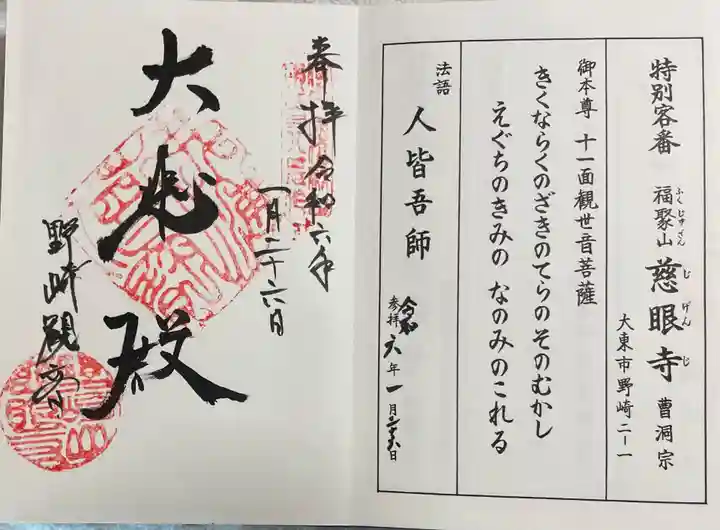 特別客番 福聚山 慈眼寺 曹洞宗
ふくじゅさん じげんじ
大東市野崎二ー一
御本尊 十一面観世音菩薩
きくならくのざきのてらの そのむかし
えぐちのきみの なのみのこれる
法語 人皆吾師
参拝 令和六年一月二十六日
奉拝 令和六年
一月二十六日
大悲殿
野崎観音